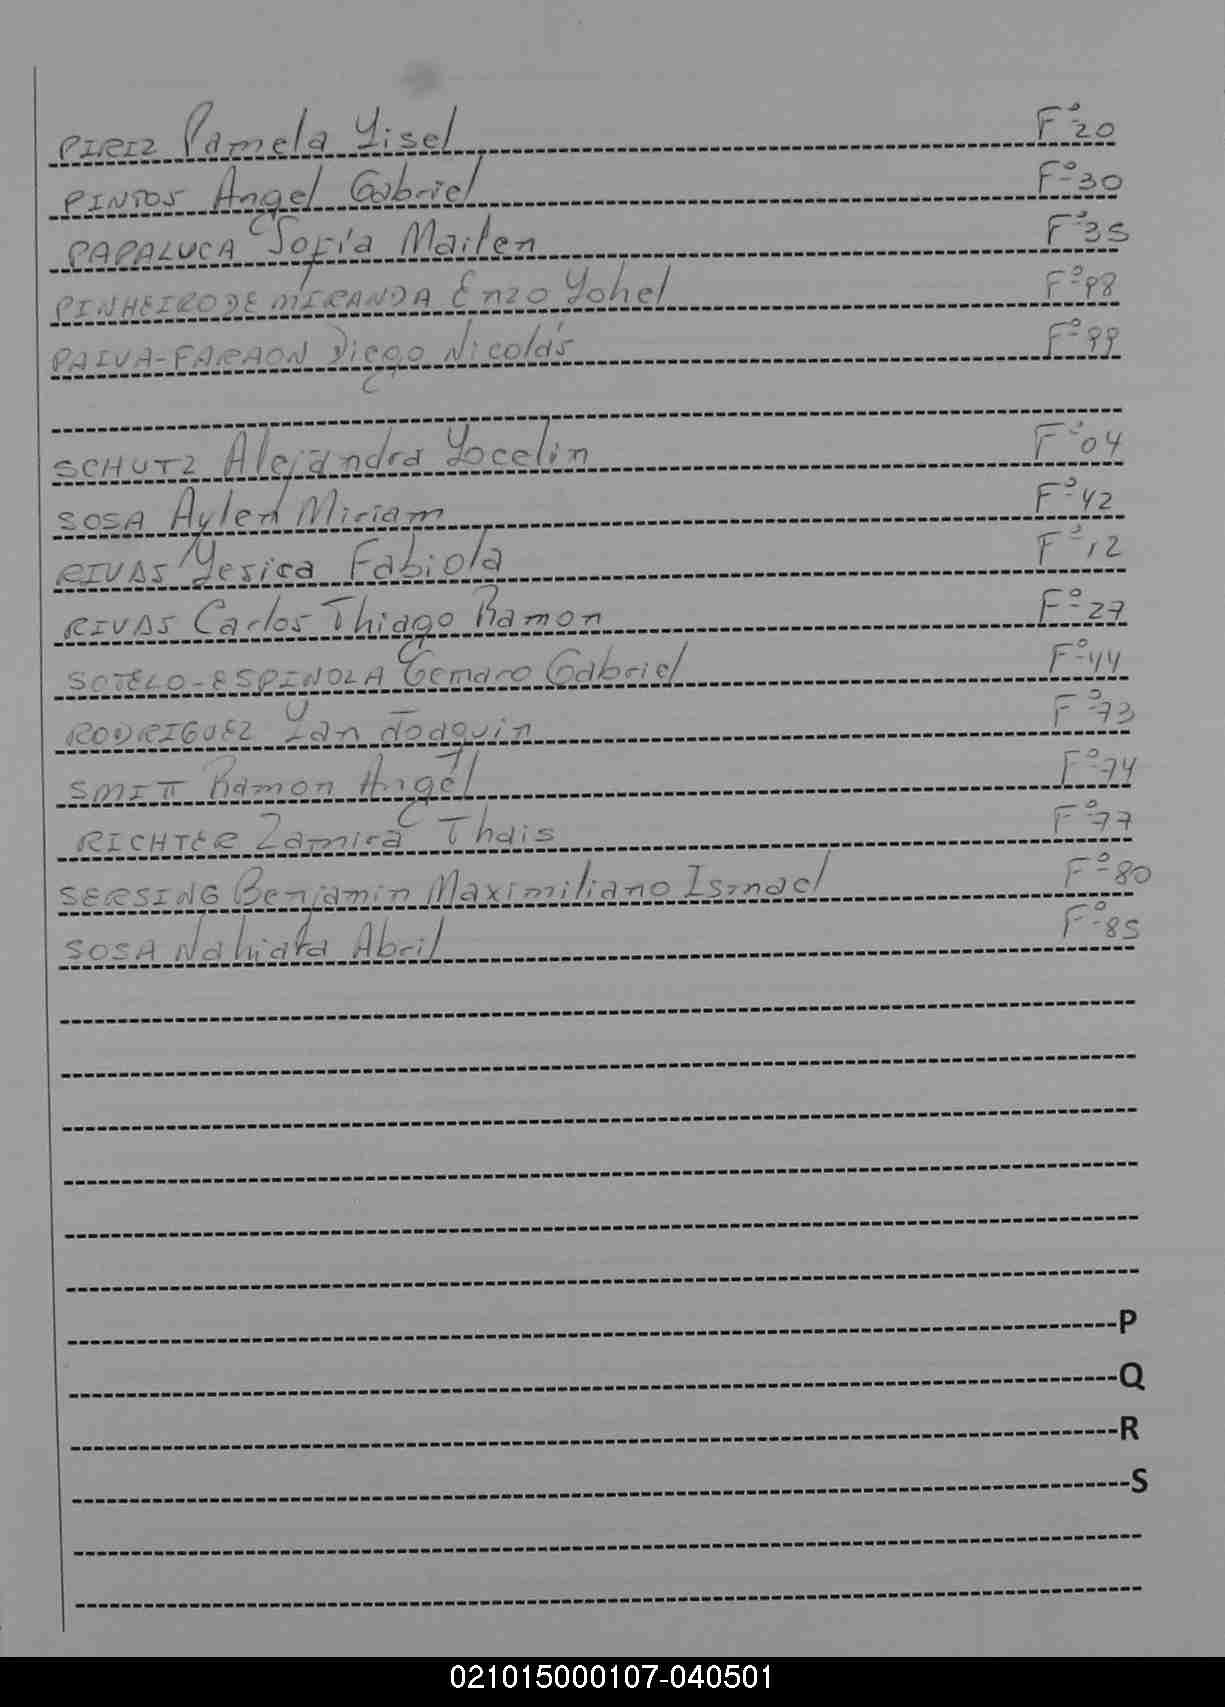 PIRIZ Pamela Yisel F°20
PINTOS Angel Gabriel F°30
PAPALUCA Sofía Mailen F°35
PINHEIRO DE MIRANDA Enzo Yohel F°98
PAIVA-FARAON Diego Nicolás F°99
SCHUTZ Alejandra Yocelin F°04
SOSA Aylen Miriam F°42
RIVAS Yesica Fabiola F°12
RIVAS Carlos Thiago Ramon F°27
SOTELO-ESPINOLA Genaro Gabriel F°44
RODRIGUEZ Ian Joaquin F°73
SMITT Ramon Angel F°74
RICHTER Zamira Thais F°77
SERSING Benjamin Maximiliano Ismael F°80
SOSA Nahiara Abril F°85
P
Q
R
S
021015000107-040501